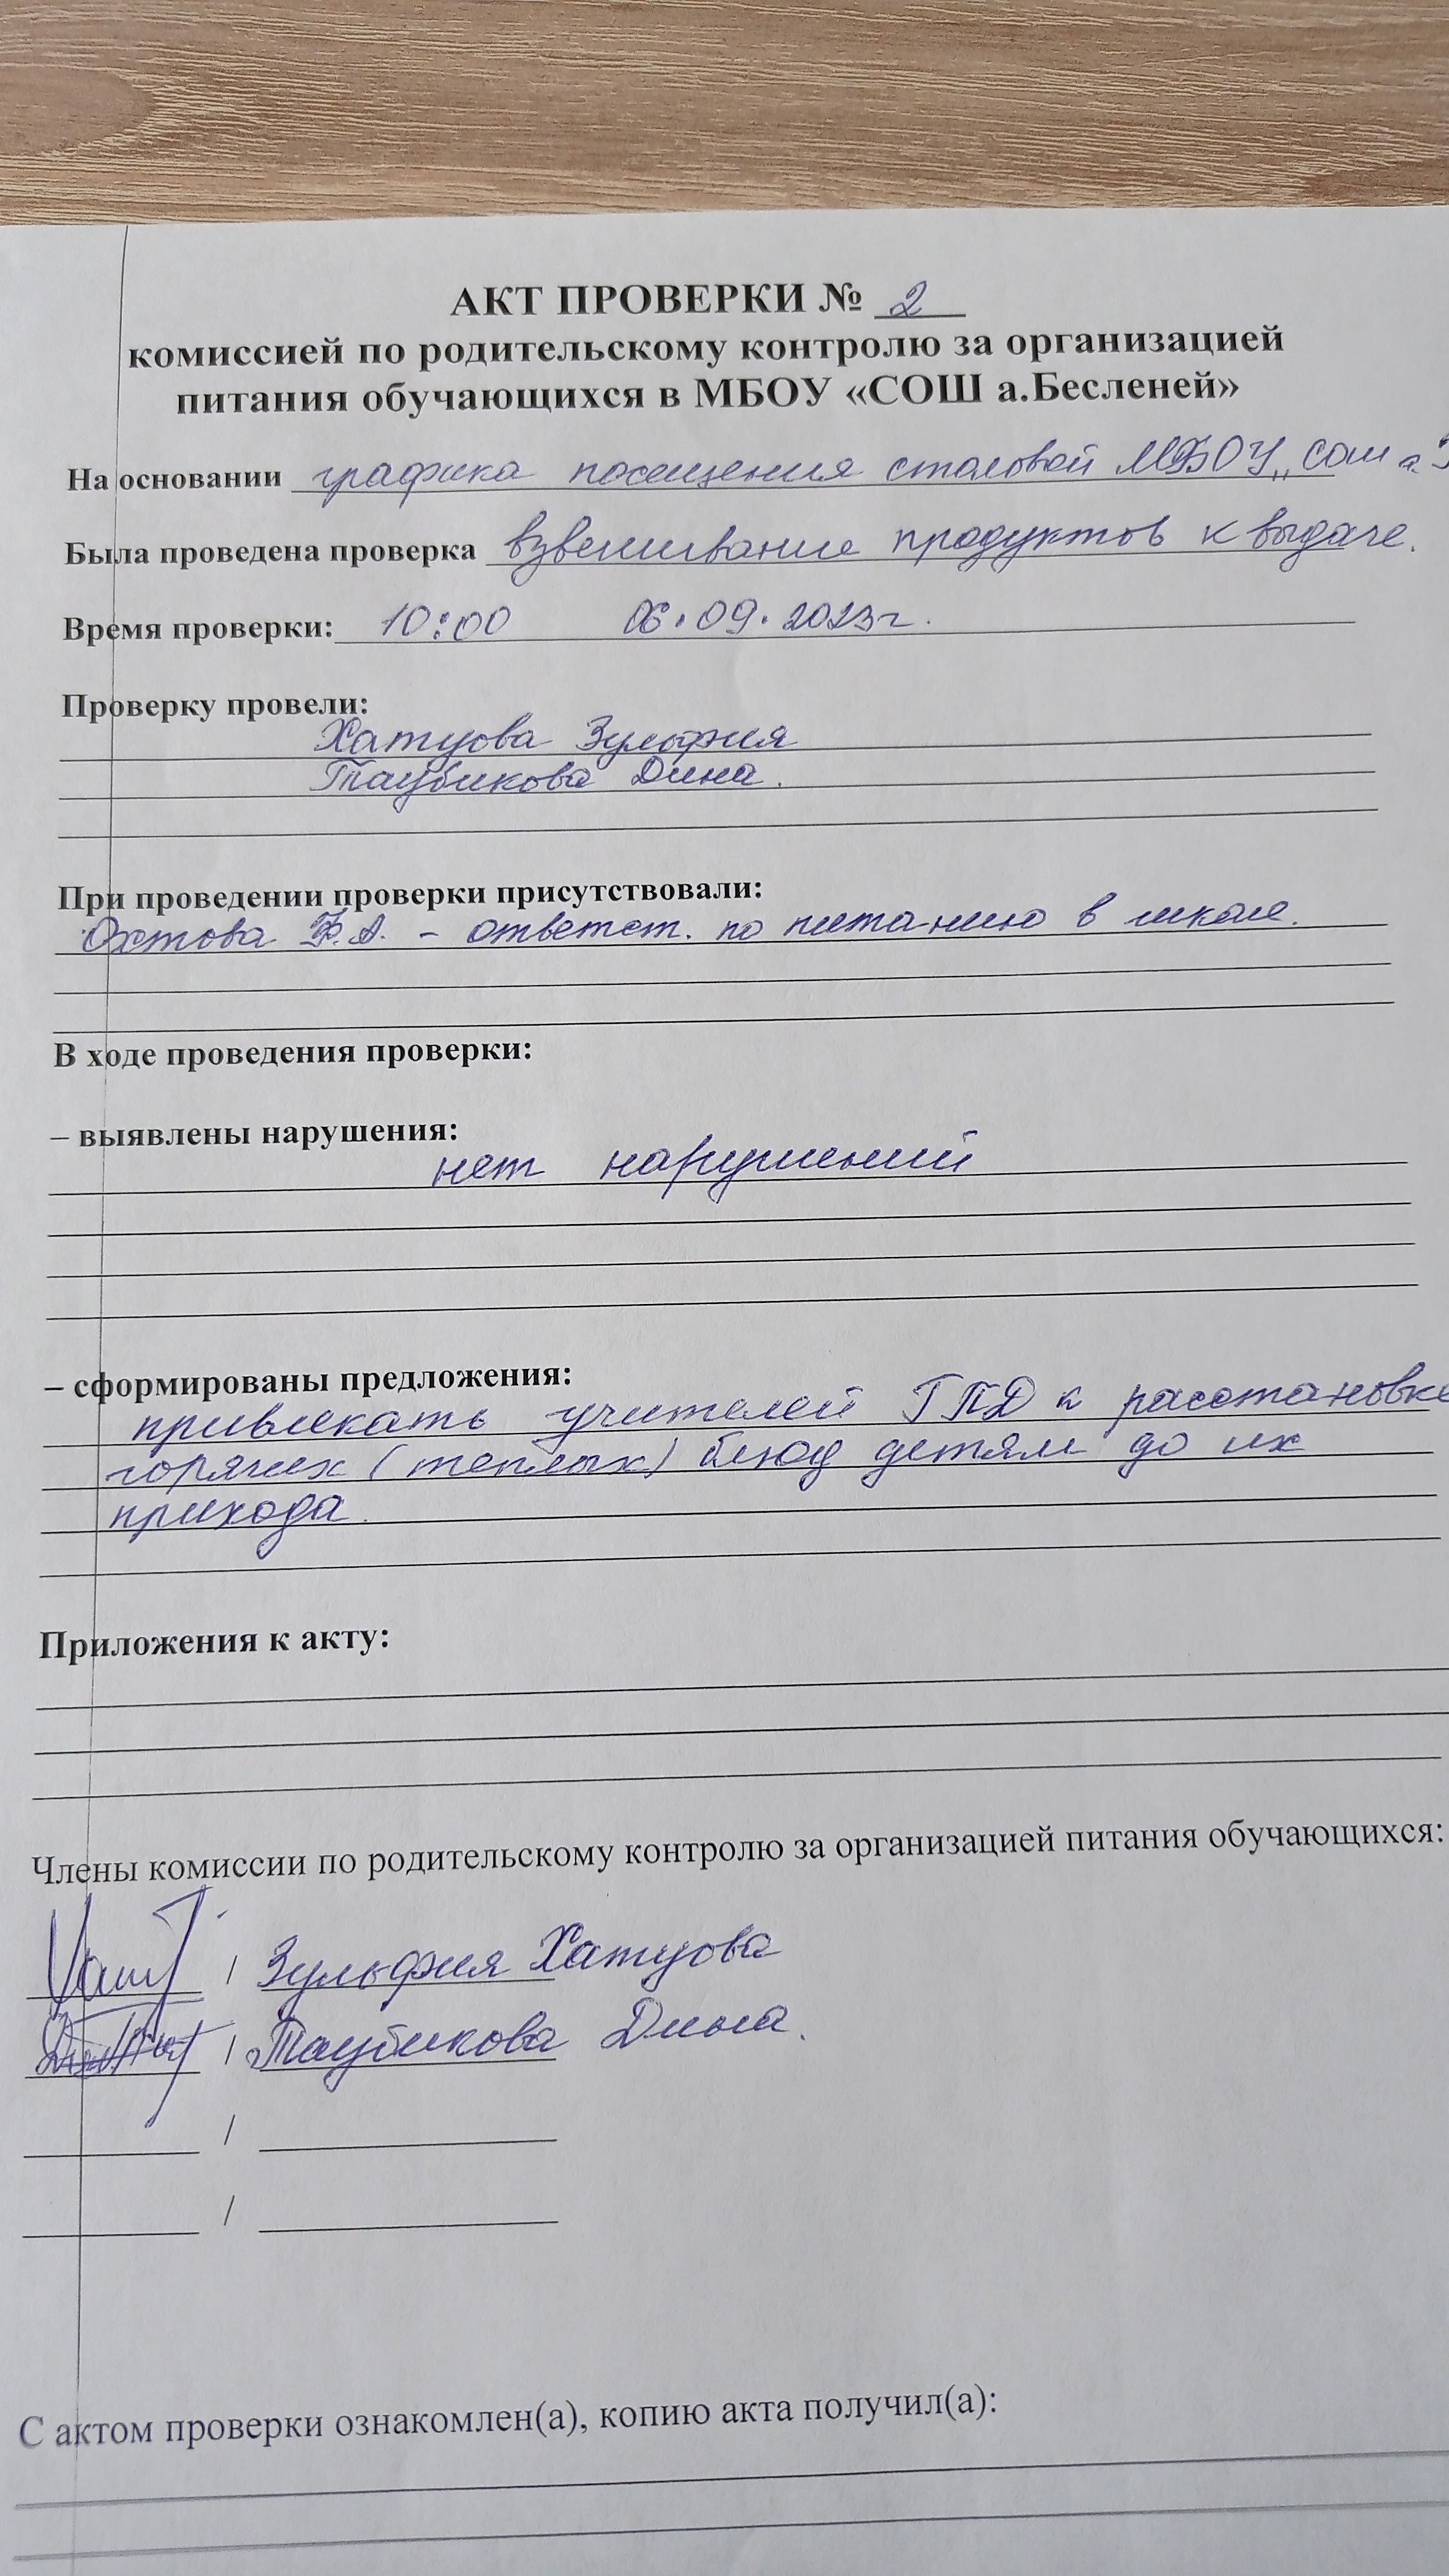 АКТ ПРОВЕРКИ № 2
комиссией по родительскому контролю за организацией
питания обучающихся в МБОУ «СОШ а.Бесленей»
На основании графика посещения столовой МБОУ „СОШ а.
Была проведена проверка взвешивание продуктов к выдаче.
Время проверки: 10:00 06.09.2023г.
Проверку провели:
Хатуова Зульфия
Таубикова Дина.
При проведении проверки присутствовали:
Охтова Ф.А. - ответст. по питанию в школе.
В ходе проведения проверки:
– выявлены нарушения:
нет нарушений
– сформированы предложения:
привлекать учителей ГПД к расстановке
горячих (теплых) блюд детям до их
прихода.
Приложения к акту:
Члены комиссии по родительскому контролю за организацией питания обучающихся:
/ Зульфия Хатуова
/ Таубикова Дина.
/
/
С актом проверки ознакомлен(а), копию акта получил(а):